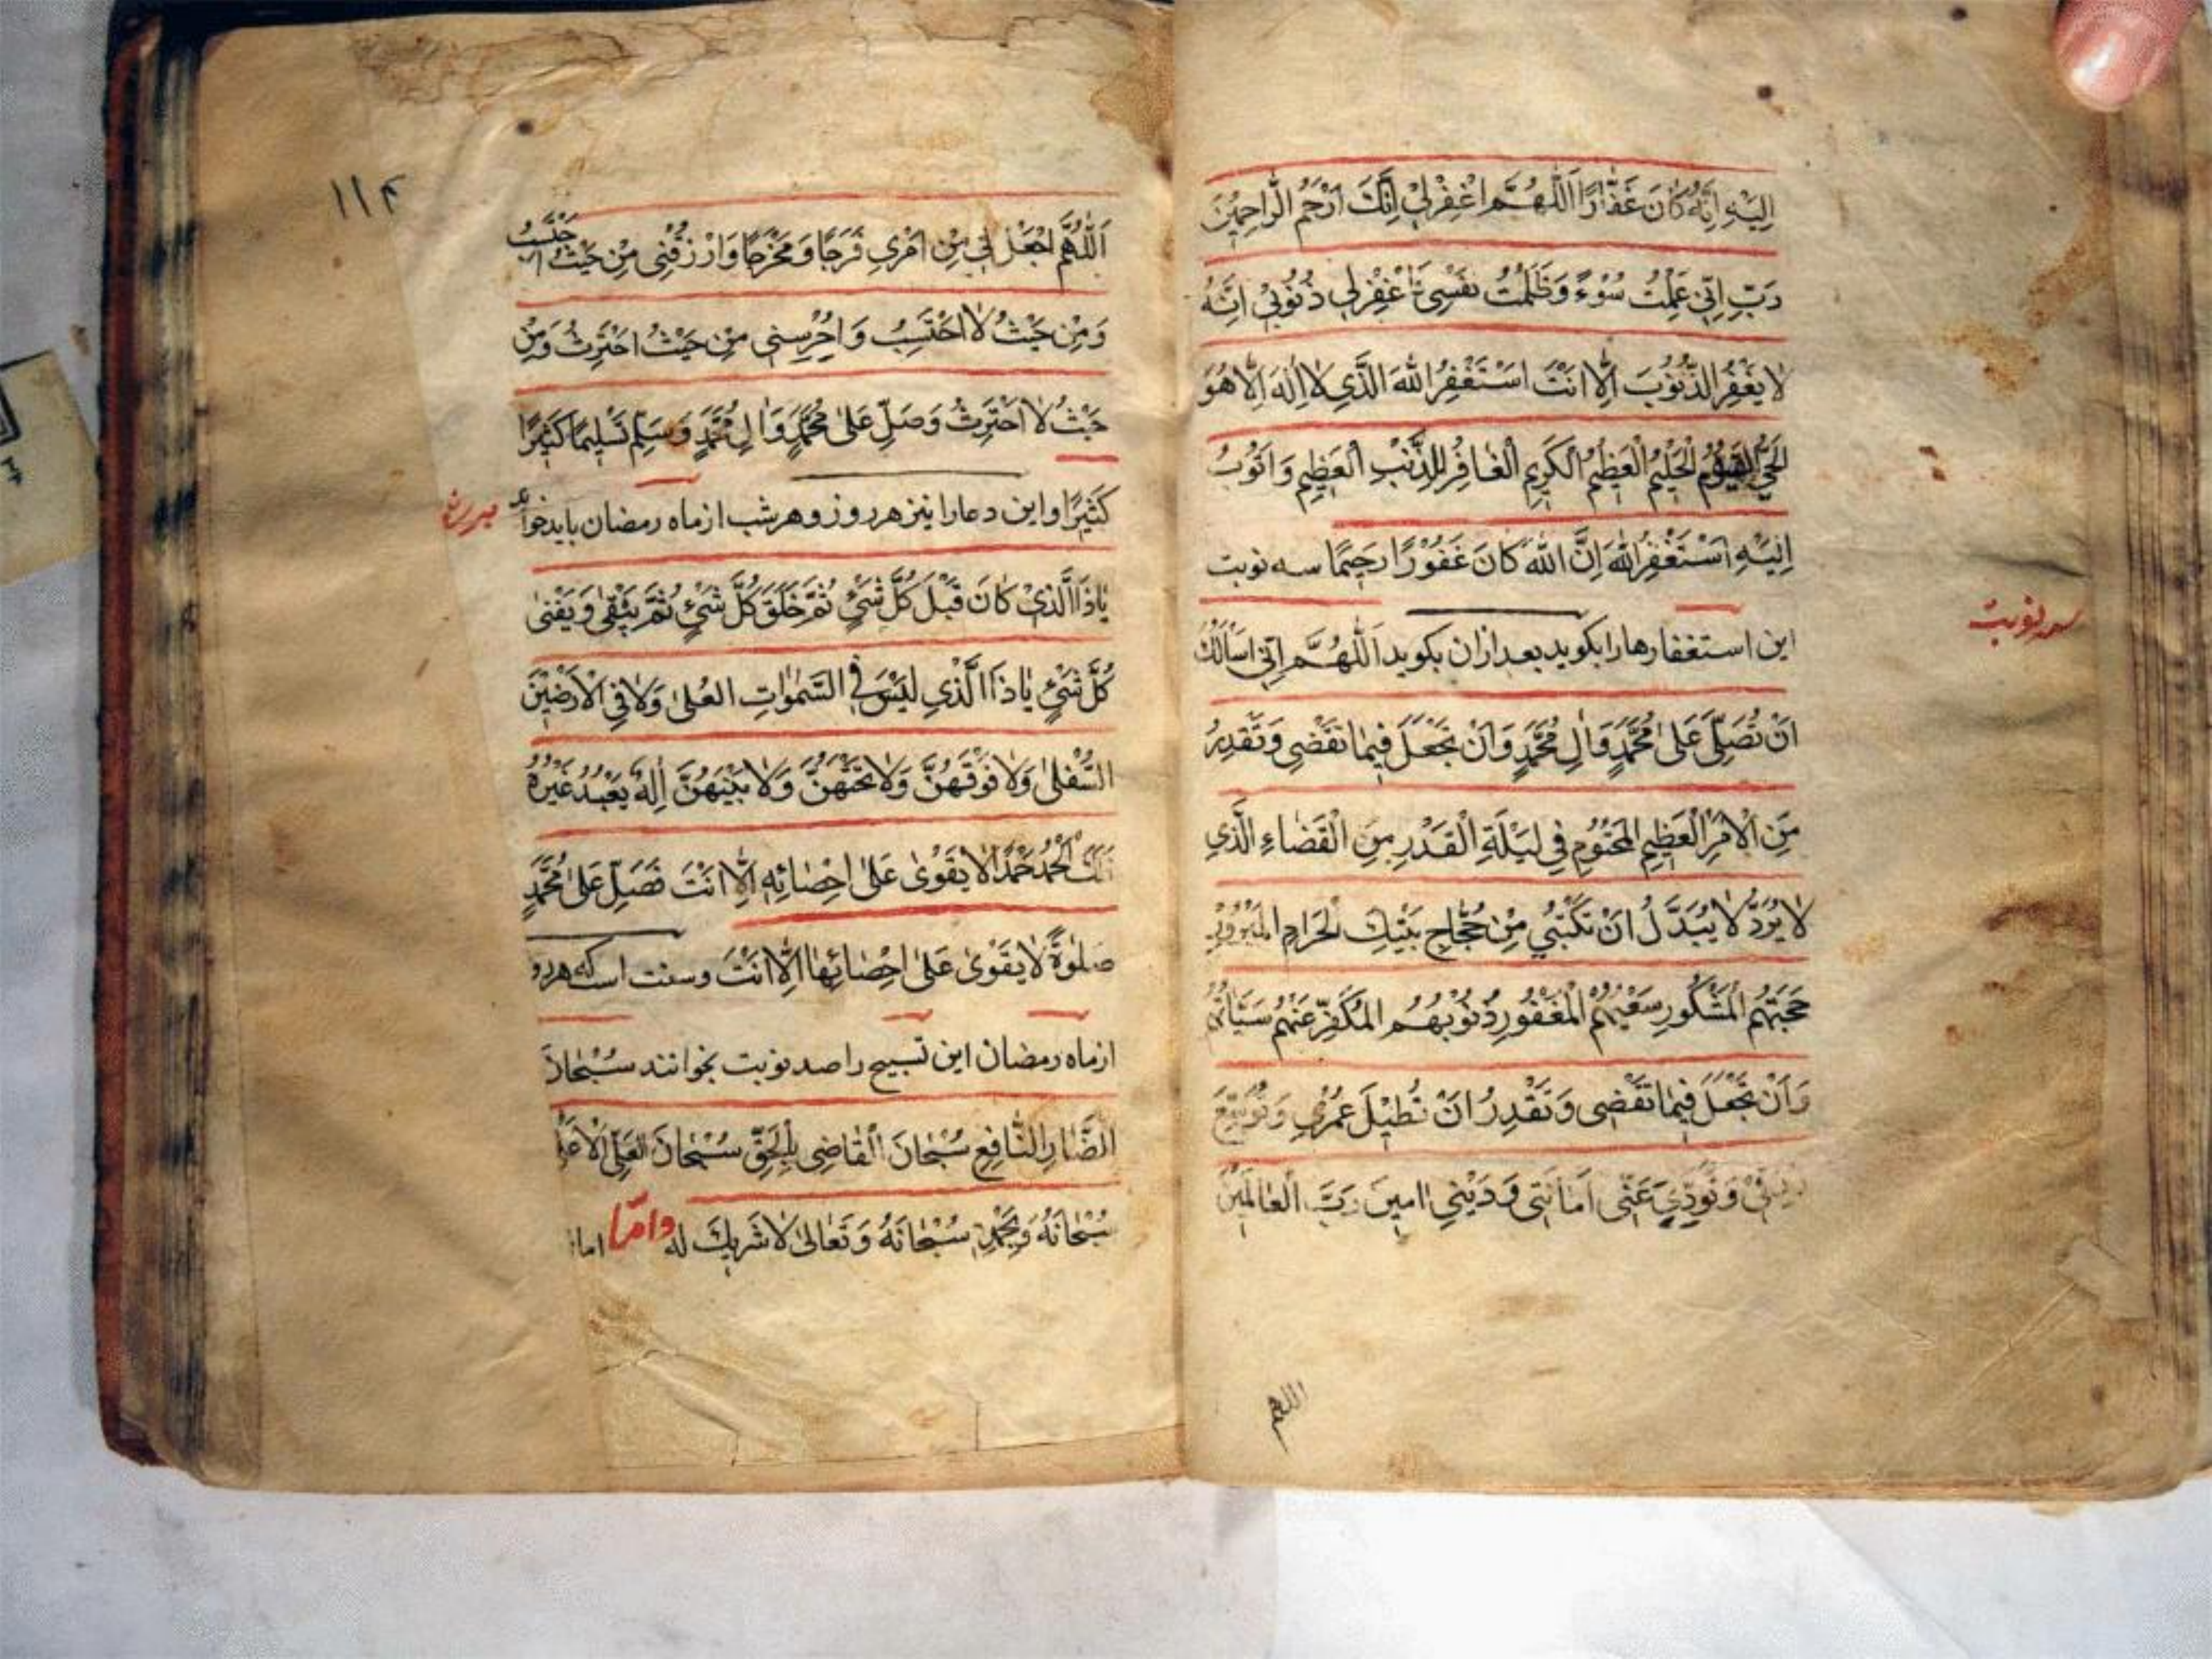 اِلَيْهِ اِنَّهُ كَانَ غَفَّارًا اَللّٰهُمَّ اغْفِرْلِيْ اِنَّكَ اَرْحَمُ الرَّاحِمِيْنَ
رَبِّ اِنّي عَمِلْتُ سُوْءً وَظَلَمْتُ نَفْسِي فَاغْفِرْلِي ذُنُوْبِيْ اِنَّهُ
لَا يَغْفِرُ الذُّنُوْبَ اِلَّا اَنْتَ اَسْتَغْفِرُ اللهَ الَّذِي لَا اِلٰهَ اِلَّا هُوَ
الْحَيُّ الْقَيُّوْمُ الْحَلِيْمُ الْعَظِيْمُ الْكَرِيْمِ الْغَافِرُ لِلذَّنْبِ الْعَظِيْمِ وَاَتُوْبُ
اِلَيْهِ اَسْتَغْفِرُ اللهَ اِنَّ اللهَ كَانَ غَفُوْرًا رَحِيْمًا سه نوبت
سه نوبت
اين استغفارها را بكويد بعد ازان بكويد اَللّٰهُمَّ اِنّي اَسْاَلُكَ
اَنْ تُصَلِّيَ عَلىٰ مُحَمَّدٍ وَاٰلِ مُحَمَّدٍ وَاَنْ تَجْعَلَ فِيْمَا تَقْضِي وَتَقْدِرُ
مِنَ الْاَمْرِ الْعَظِيْمِ الْمَحْتُوْمِ فِي لَيْلَةِ الْقَدْرِ مِنَ الْقَضَاءِ الَّذِي
لَا يُرَدُّ لَا يُبَدَّلُ اَنْ تَكْتُبَنِي مِنْ حُجَّاجِ بَيْتِكَ الْحَرَامِ الْمَبْرُوْرِ
حَجَّتَهُمُ الْمَشْكُورِ سَعْيُهُمُ الْمَغْفُورِ ذُنُوْبُهُمُ الْمُكَفَّرِ عَنْهُمْ سَيِّئَاتُهُمْ
وَاَنْ تَجْعَلَ فِيْمَا تَقْضِي وَتَقْدِرُ اَنْ تُطِيْلَ عُمْرِي وَتُوَسِّعَ
رِزْقِيْ وَتُوَدِّيَ عَنّي اَمَانَتِي وَدَيْنِي اٰمين رَبَّ الْعَالَمِيْنَ
اللهم
١١٤
اَللّٰهُمَّ اجْعَلْ لِي مِنْ اَمْرِي فَرَجًا وَمَخْرَجًا وَارْزُقْنِي مِنْ حَيْثُ اَحْتَسِبُ
وَمِنْ حَيْثُ لَا اَحْتَسِبُ وَاحْرِسْنِي مِنْ حَيْثُ اَحْتَرِثُ وَمِنْ
حَيْثُ لَا اَحْتَرِثُ وَصَلِّ عَلىٰ مُحَمَّدٍ وَاٰلِ مُحَمَّدٍ وَسَلِّمْ تَسْلِيْمًا كَثِيْرًا
كَثِيْرًا و اين دعا را نيز هر روز و هر شب از ماه رمضان بايد خواند
يَا ذَا الَّذِيْ كَانَ قَبْلَ كُلِّ شَيْءٍ ثُمَّ خَلَقَ كُلَّ شَيْءٍ ثُمَّ يَبْقىٰ وَيَفْنىٰ
كُلُّ شَيْءٍ يَا ذَا الَّذِي لَيْسَ فِي السَّمٰوَاتِ الْعُلىٰ وَلَا فِي الْاَرَضِيْنَ
السُّفْلىٰ وَلَا فَوْقَهُنَّ وَلَا تَحْتَهُنَّ وَلَا بَيْنَهُنَّ اِلٰهٌ يُعْبَدُ غَيْرُهُ
لَكَ الْحَمْدُ حَمْدًا لَا يَقْوىٰ عَلىٰ اِحْصَائِهِ اِلَّا اَنْتَ فَصَلِّ عَلىٰ مُحَمَّدٍ
صَلٰوةً لَا يَقْوىٰ عَلىٰ اِحْصَائِهَا اِلَّا اَنْتَ وسنت است كه هر رو
از ماه رمضان اين تسبيح را صد نوبت بخوانند سُبْحَانَ
الضَّارِ النَّافِعِ سُبْحَانَ الْقَاضِي بِالْحَقِّ سُبْحَانَ الْعَلِيِّ الْاَعْلىٰ
سُبْحَانَهُ وَبِحَمْدِهِ سُبْحَانَهُ وَتَعَالىٰ لَا شَرِيْكَ له وامّا اما